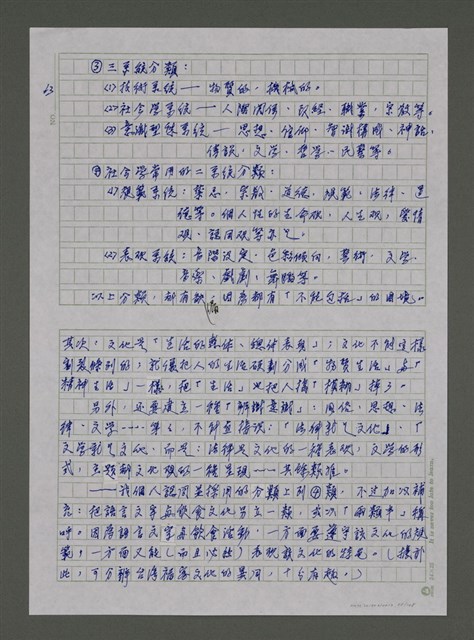 ③三系統分類：
⑴技術系統──物質的，機械的。
⑵社會學系統──人際關係、政經、職業、宗教等。
⑶意識型態系統──思想、信仰、智識構成、神話、
傳說、文學、哲學、民慧等。
④社會學常用的二系統分類：
⑴規範系統：禁忌、宗教、道德、規範、法律、道
德等。個人性的生命觀，人生觀，愛情
觀、認同觀等亦是。
⑵表現系統：音階設定、色彩傾向，藝術、文學、
音樂、戲劇、舞蹈等。
以上分類，都有缺憾，因為都有「不能包括」的困境。
其次，文化是「生活的整體、總體表現」；文化不能這樣
割裂條列的；就像把人的生活硬劃分成「物質生活」與「
精神生活」一樣，把「生活」也把人搞「模糊」掉了。
另外，還要建立一種「解識意識」：固化，思想、法
律、文學……等々，不能直接說：「法律就是文化」、「
文學就是文化」而是：法律是文化的一種表現，文學的形
式，主題都文化觀的一種呈現……其餘類推。
──我個人認同並採用的分類上列④類，不過加以補
充：把語言文字與飲食文化另立一類，或以「兩類中」稱
呼。因為語言文字與飲食活動，一方面要遵守該文化的規
範，一方面又能（而且必然）表現該文化的特色。（據於
此，可分辨台灣福客文化的異同，十分有趣。）